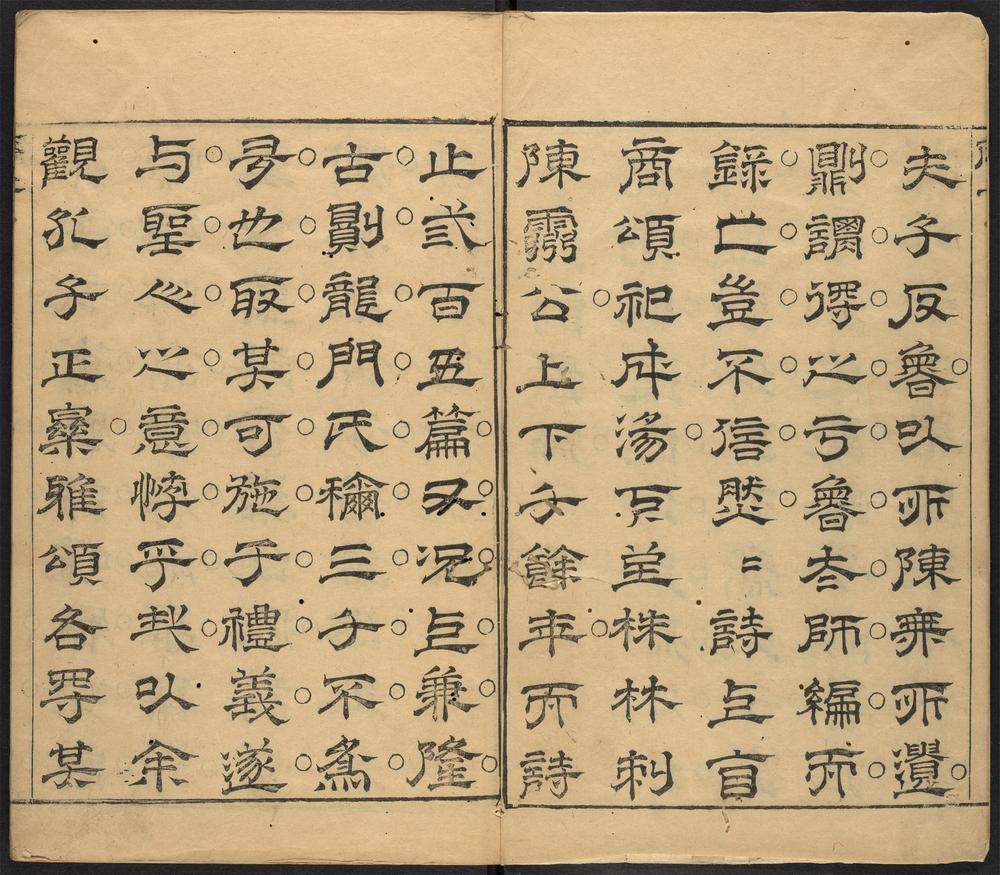 夫子反魯以所陳所
則謂得之亏魯太師編而
錄亡豈不信然〻詩上自
商頌祀成湯下至株林刺
陳靈公上下千餘年而詩
止弍百五篇又況上兼隆
古則龍門氏稱三千不為
多也取其可施于禮義遂
与聖心之意悖乎哉以余
觀孔子正樂雅頌各得其